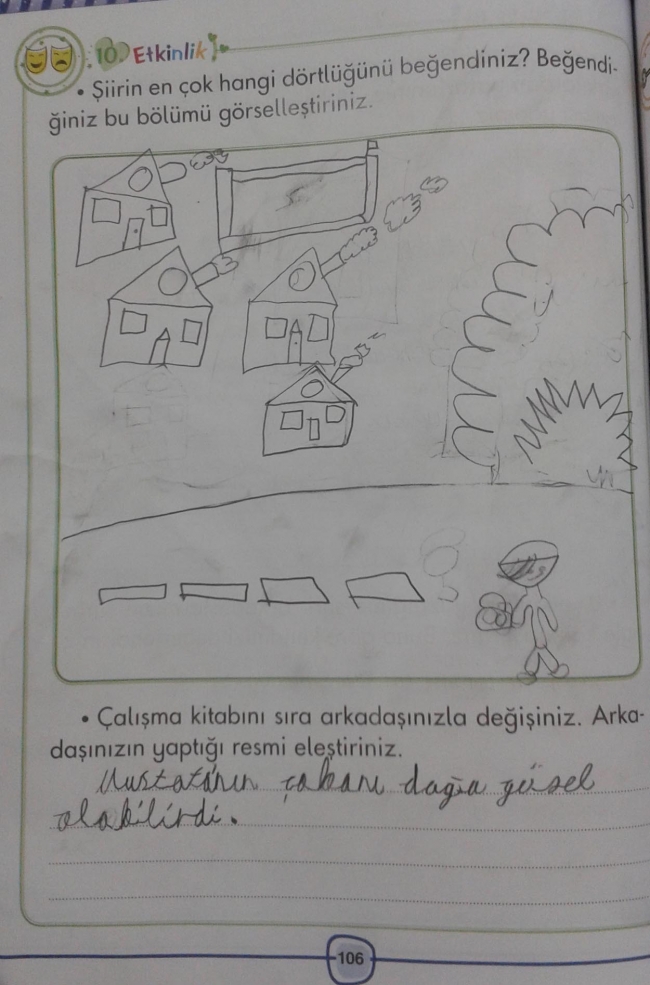 10. Etkinlik
• Şiirin en çok hangi dörtlüğünü beğendiniz? Beğendi-
ğiniz bu bölümü görselleştiriniz.
• Çalışma kitabını sıra arkadaşınızla değişiniz. Arka-
daşınızın yaptığı resmi eleştiriniz.
Mustafa'nın çabanı dağıa güsel
olabilirdi.
106